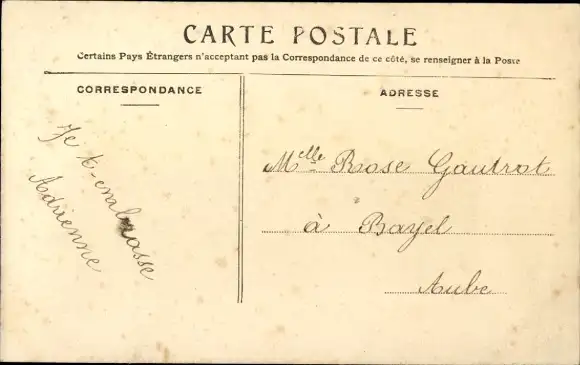 CARTE POSTALE
Certains Pays Étrangers n'acceptent pas la Correspondance de ce côté, se renseigner à la Poste
CORRESPONDANCE
Je t-embrasse
Adrienne
ADRESSE
Melle Rose Gautrot
à Bayel
Aube